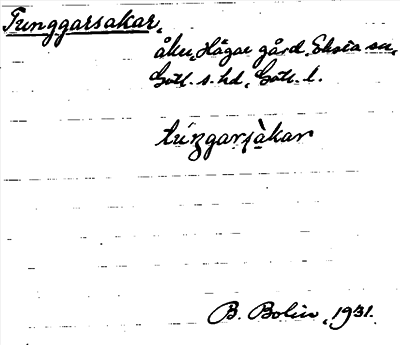 Tunggarsakar,
åker, Hägar gård, Eksta sn,
Gotl. s. hd, Gotl. l.
túngarsàkar
B. Bolin, 1931.